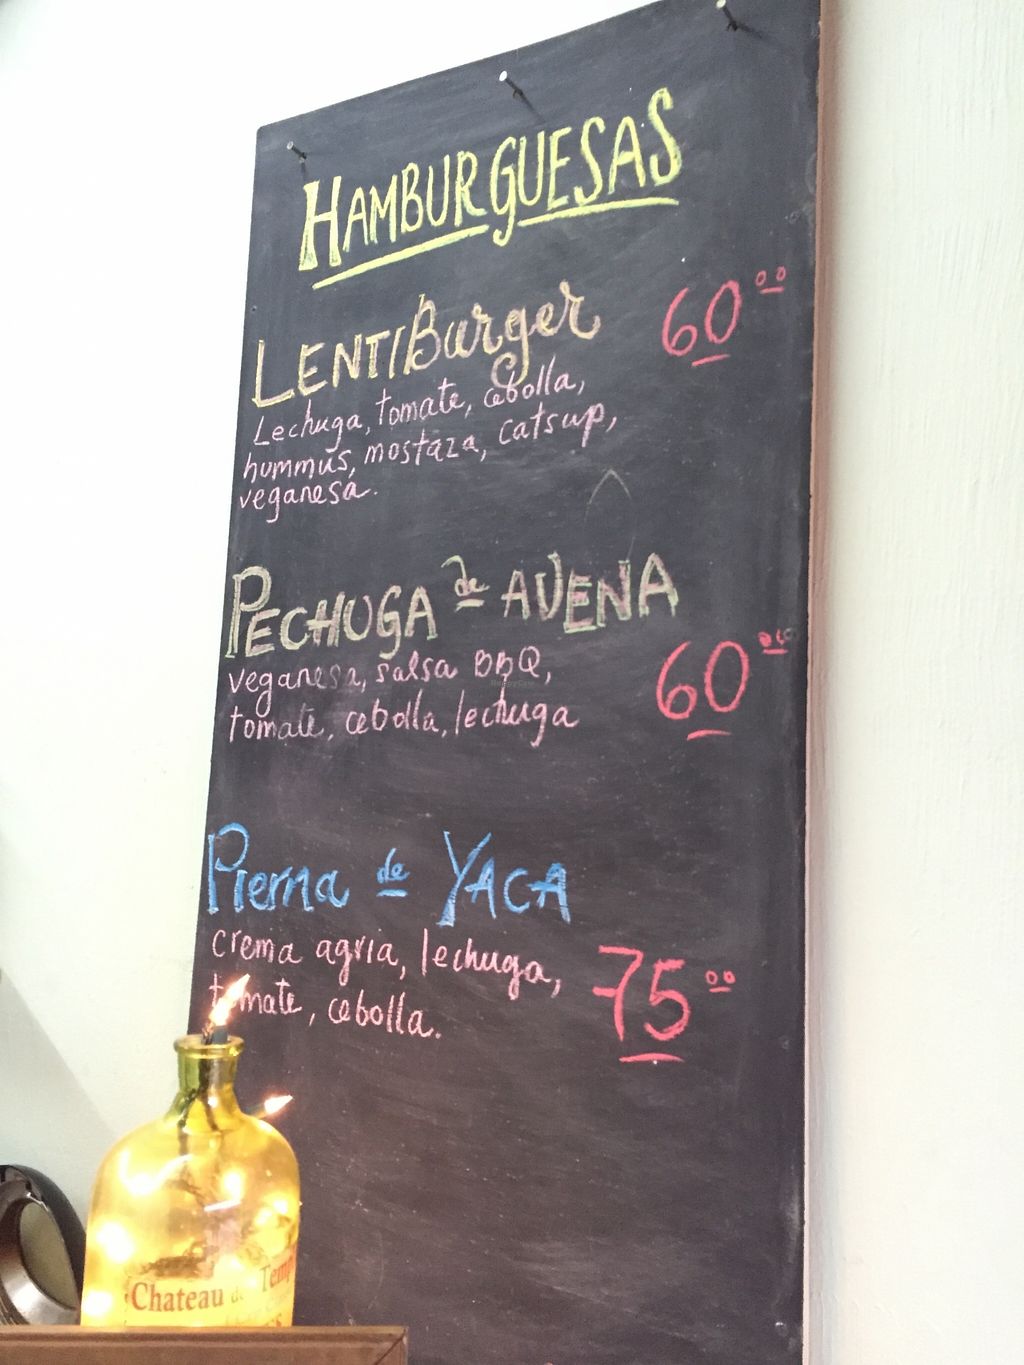 HAMBURGUESAS
LENTIBurger 60.00
Lechuga, tomate, cebolla,
hummus, mostaza, catsup,
veganesa.
PECHUGA de AVENA
veganesa, salsa BBQ, 60.00
tomate, cebolla, lechuga
Pierna de YACA
crema agria, lechuga, 75.00
tomate, cebolla.
Chateau de